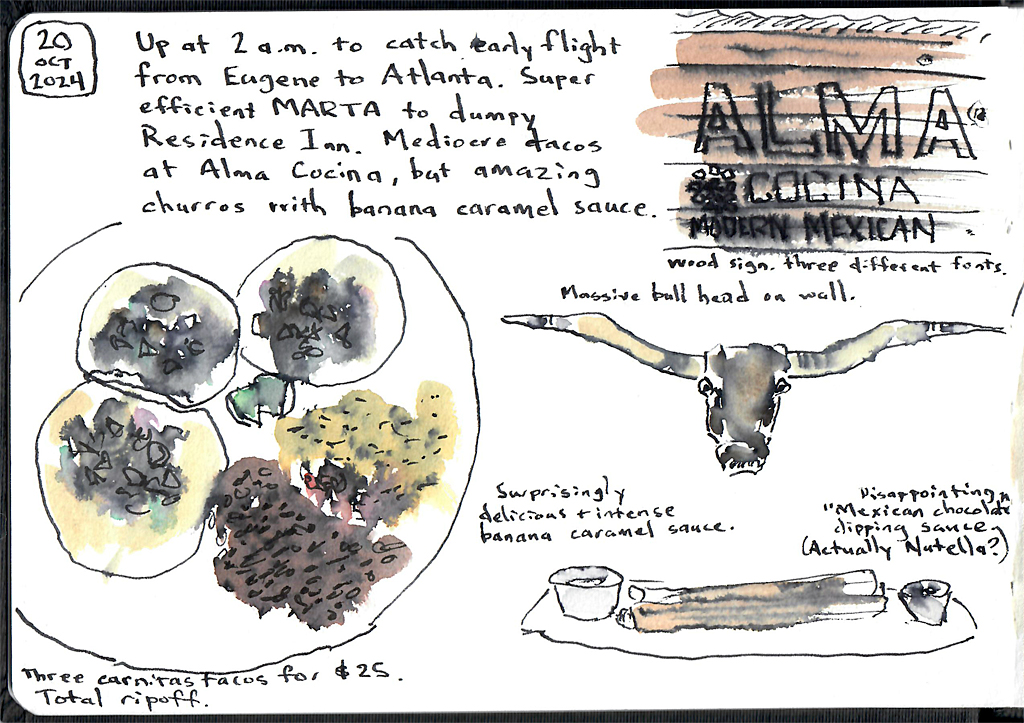 20
OCT
2024
Up at 2 a.m. to catch early flight
from Eugene to Atlanta. Super
efficient MARTA to dumpy
Residence Inn. Mediocre tacos
at Alma Cocina, but amazing
churros with banana caramel sauce.
ALMA
COCINA
MODERN MEXICAN
Wood sign. three different fonts.
Massive bull head on wall.
Surprisingly
delicious + intense
banana caramel sauce.
Disappointing
"Mexican chocolate"
dipping sauce
(Actually Nutella?)
Three carnitas tacos for $25.
Total ripoff.